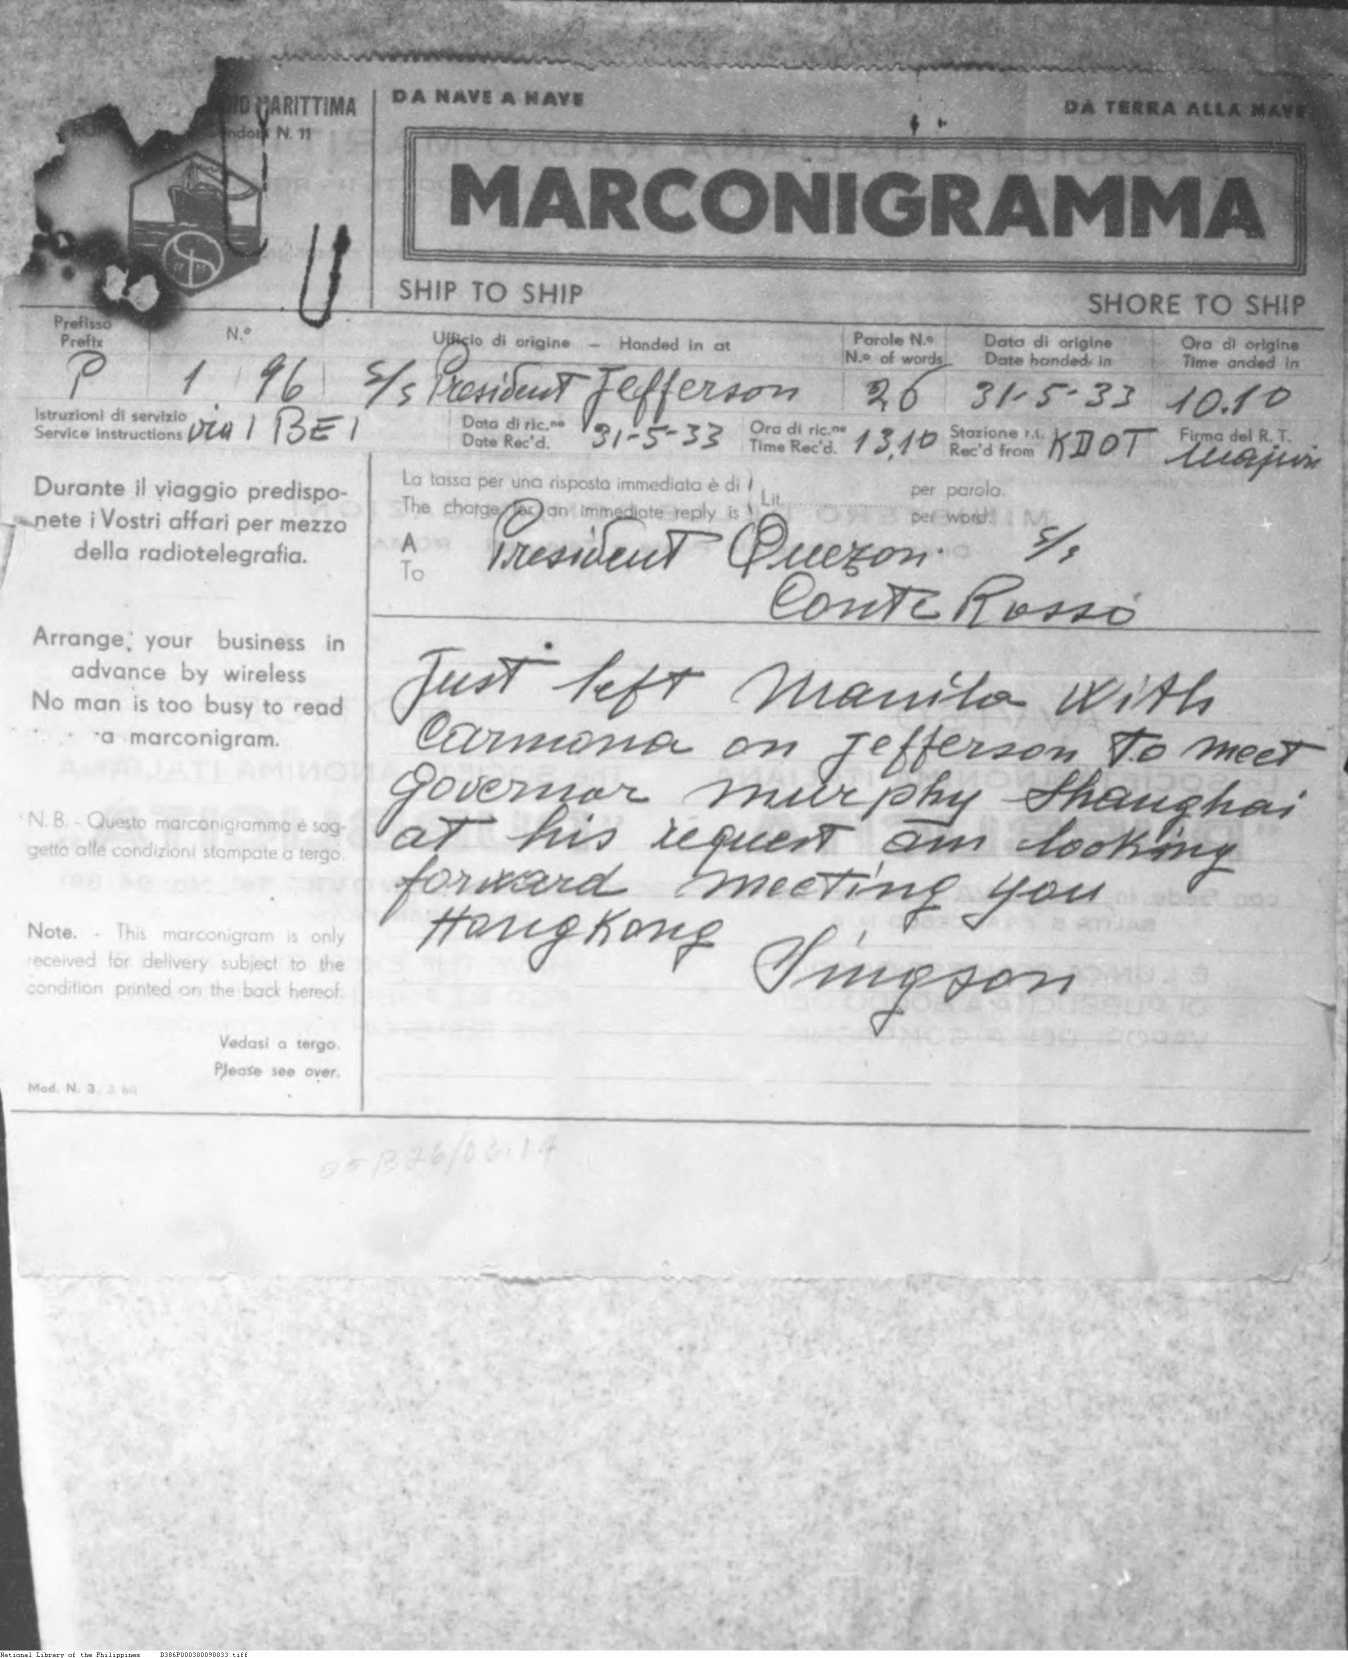 MARITTIMA
N. 11
DA NAVE A NAVE
DA TERRA ALLA NAVE
MARCONIGRAMMA
SHIP TO SHIP
SHORE TO SHIP
Prefisso
Prefix
N.º
Ufficio di origine - Handed in at
Parole N.º
N.º of words
Data di origine
Date handed in
Ora di origine
Time anded in
P 1 96 S/s President Jefferson 26 31-5-33 10.10
Istruzioni di servizio
Service instructions
via IBEI
Data di ric.ne
Date Rec'd.
31-5-33
Ora di ric.ne
Time Rec'd.
13,10
Stazione r.t.
Rec'd from
KDOT
Firma del R. T.
Durante il viaggio predispo-
nete i Vostri affari per mezzo
della radiotelegrafia.
Arrange, your business in
advance by wireless
No man is too busy to read
a marconigram.
N. B. - Questo marconigramma è sog-
getto alle condizioni stampate a tergo.
Note. - This marconigram is only
received for delivery subject to the
condition printed on the back hereof.
Vedasi a tergo.
Please see over.
Mod. N. 3
La tassa per una risposta immediata è di
The charge for an immediate reply is
Lit.
per parola.
per word.
A
To
President Quezon. S/s
Conte Rosso
Just left Manila with
Carmona on Jefferson to meet
Governor Murphy Shanghai
at his request am looking
forward meeting you
HongKong
Singson
National Library of the Philippines B386P000380098033.tiff